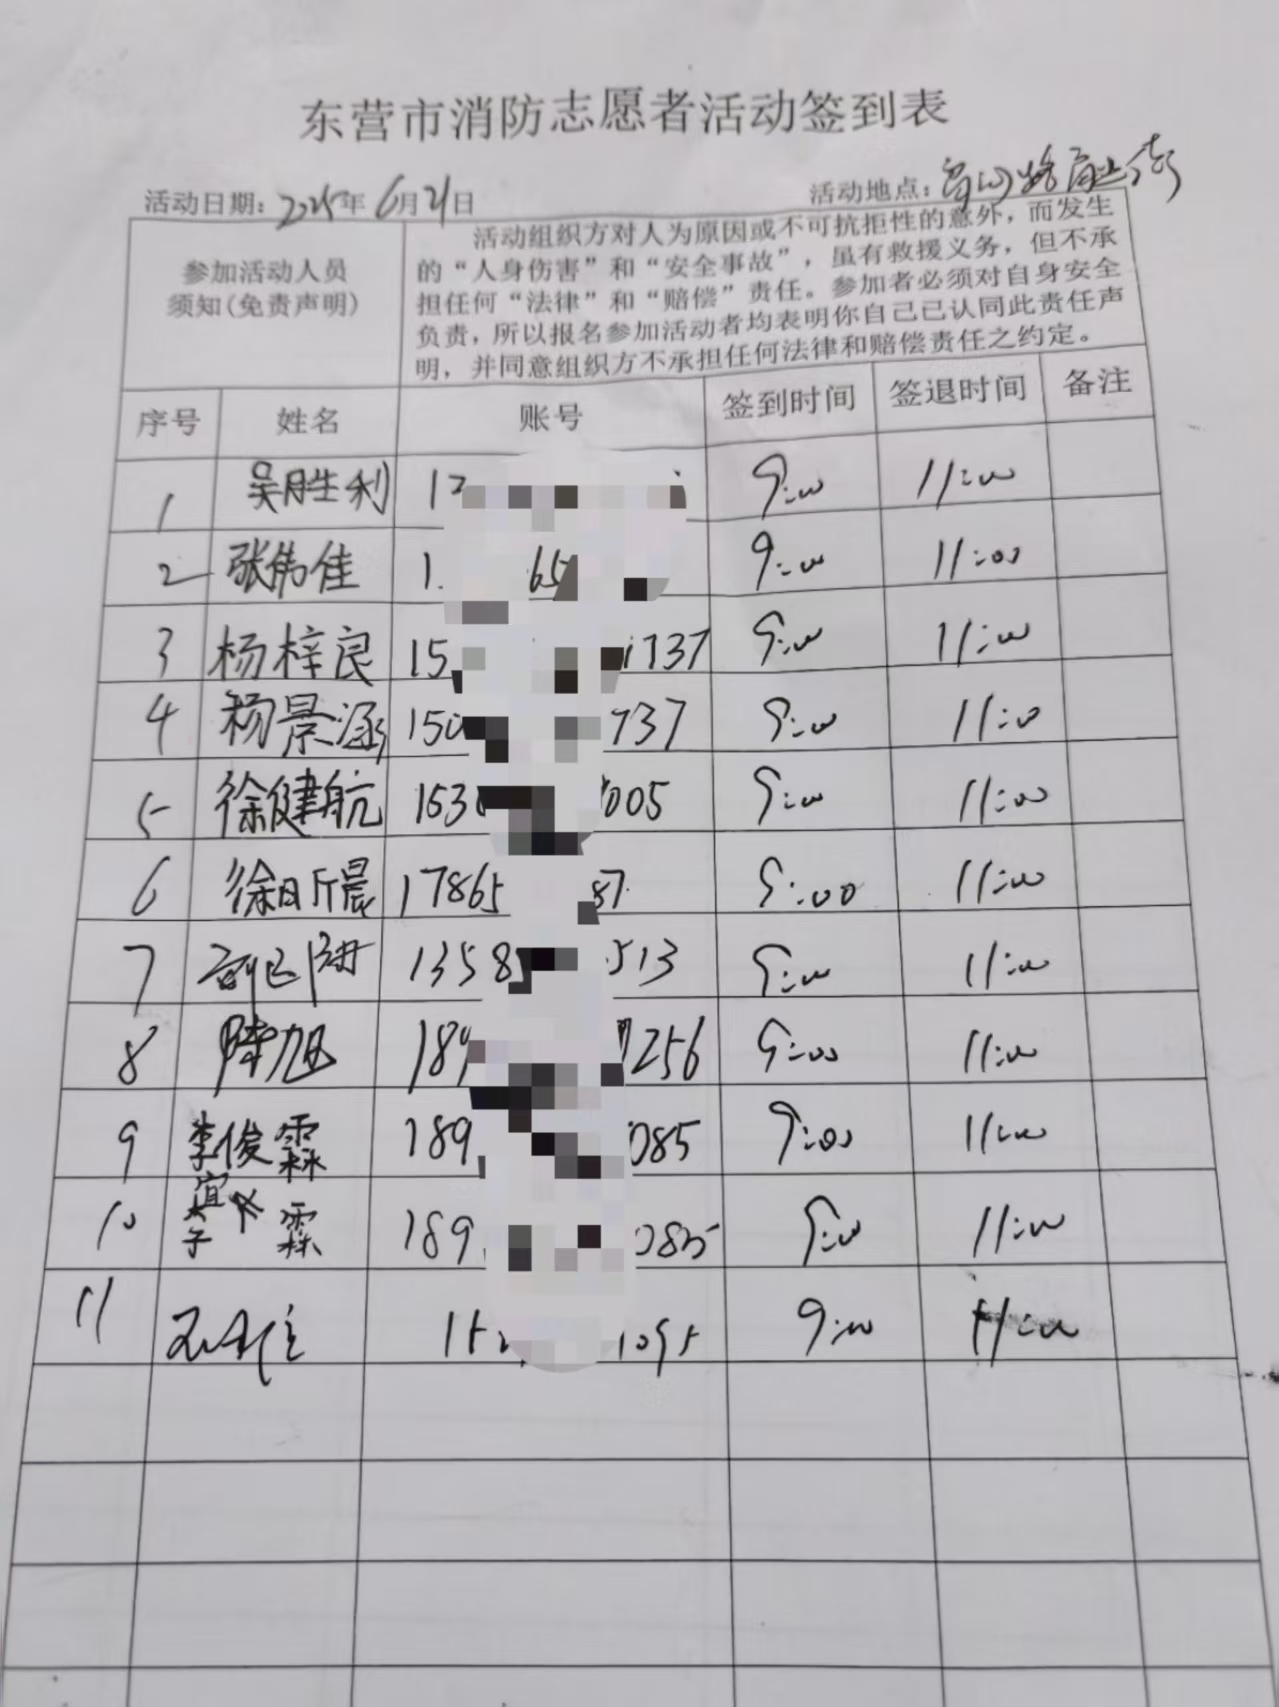 东营市消防志愿者活动签到表
活动日期：2025年6月21日 活动地点：
参加活动人员
须知(免责声明)
活动组织方对人为原因或不可抗拒性的意外，而发生
的“人身伤害”和“安全事故”，虽有救援义务，但不承
担任何“法律”和“赔偿”责任。参加者必须对自身安全
负责，所以报名参加活动者均表明你自己已认同此责任声
明，并同意组织方不承担任何法律和赔偿责任之约定。
序号 姓名 账号 签到时间 签退时间 备注
1 吴胜利 9:00 11:00
2 张伟佳 1 65 9:00 11:00
3 杨梓良 15 1737 9:00 11:00
4 杨景涵 150 737 9:00 11:00
5 徐健航 153 005 9:00 11:00
6 徐昕晨 17865 87 9:00 11:00
7 1358 513 9:00 11:00
8 陈旭 189 256 9:00 11:00
9 李俊霖 189 085 9:00 11:00
10 霖 189 085 9:00 11:00
11 15 1095 9:00 11:00